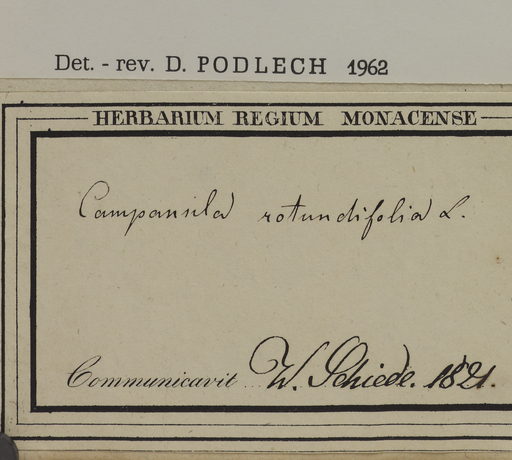 Det. - rev. D. PODLECH 1962
HERBARIUM REGIUM MONACENSE
Campanula rotundifolia L.
Communicavit W. Schiede. 1821.